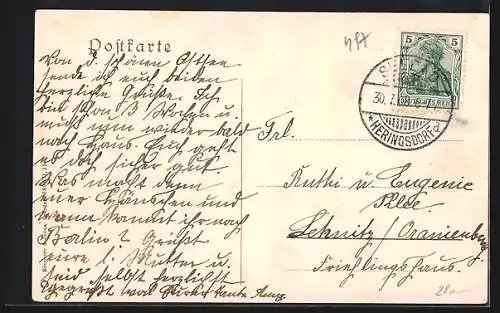 Postkarte
Von d. schönen Ostsee
sende ich euch beiden
herzliche Grüße. Ich
bin schon 3 Wochen u.
muß nun wieder bald
nach Haus. Euch geht
es doch sicher gut.
Was macht denn
euer und
wann kommt ihr nach
Berlin? Grüßt
eure l. Mutter u.
seid selbst herzlichst
gegrüßt von Tante
5
30.
HERINGSDORF
Frl.
Ruthi u. Eugenie
Lehnitz / Oranienburg
Friehlingshaus.